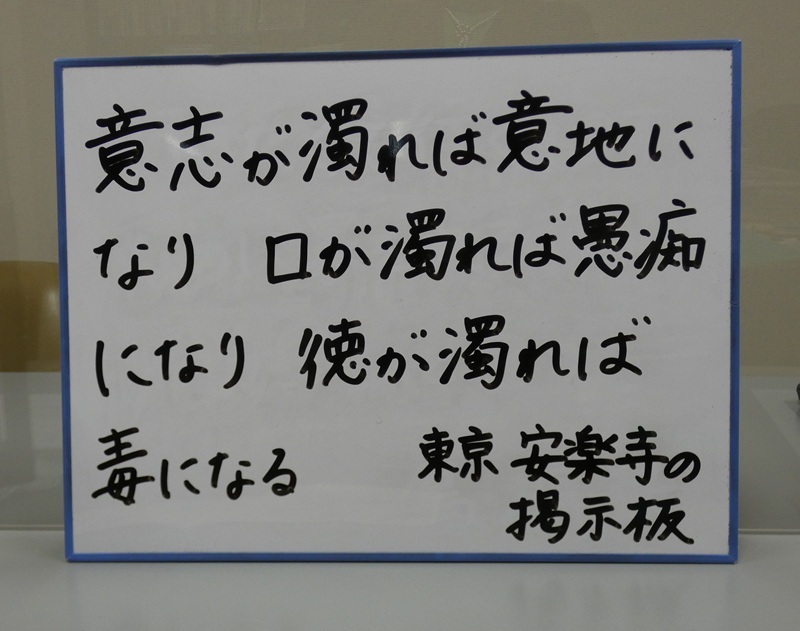 意志が濁れば意地に
なり　口が濁れば愚痴
になり　徳が濁れば
毒になる　東京 安楽寺の
掲示板